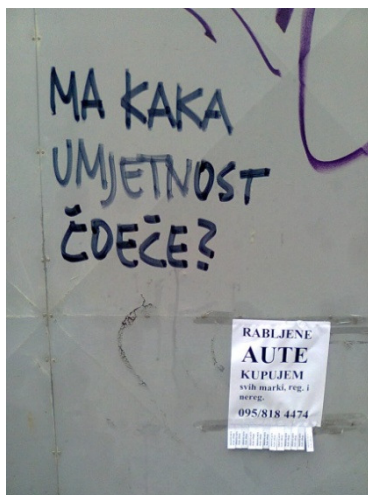 MA KAKA
UMJETNOST
ČOEČE?
RABLJENE
AUTE
KUPUJEM
svih marki, reg. i
nereg.
095/818 4474